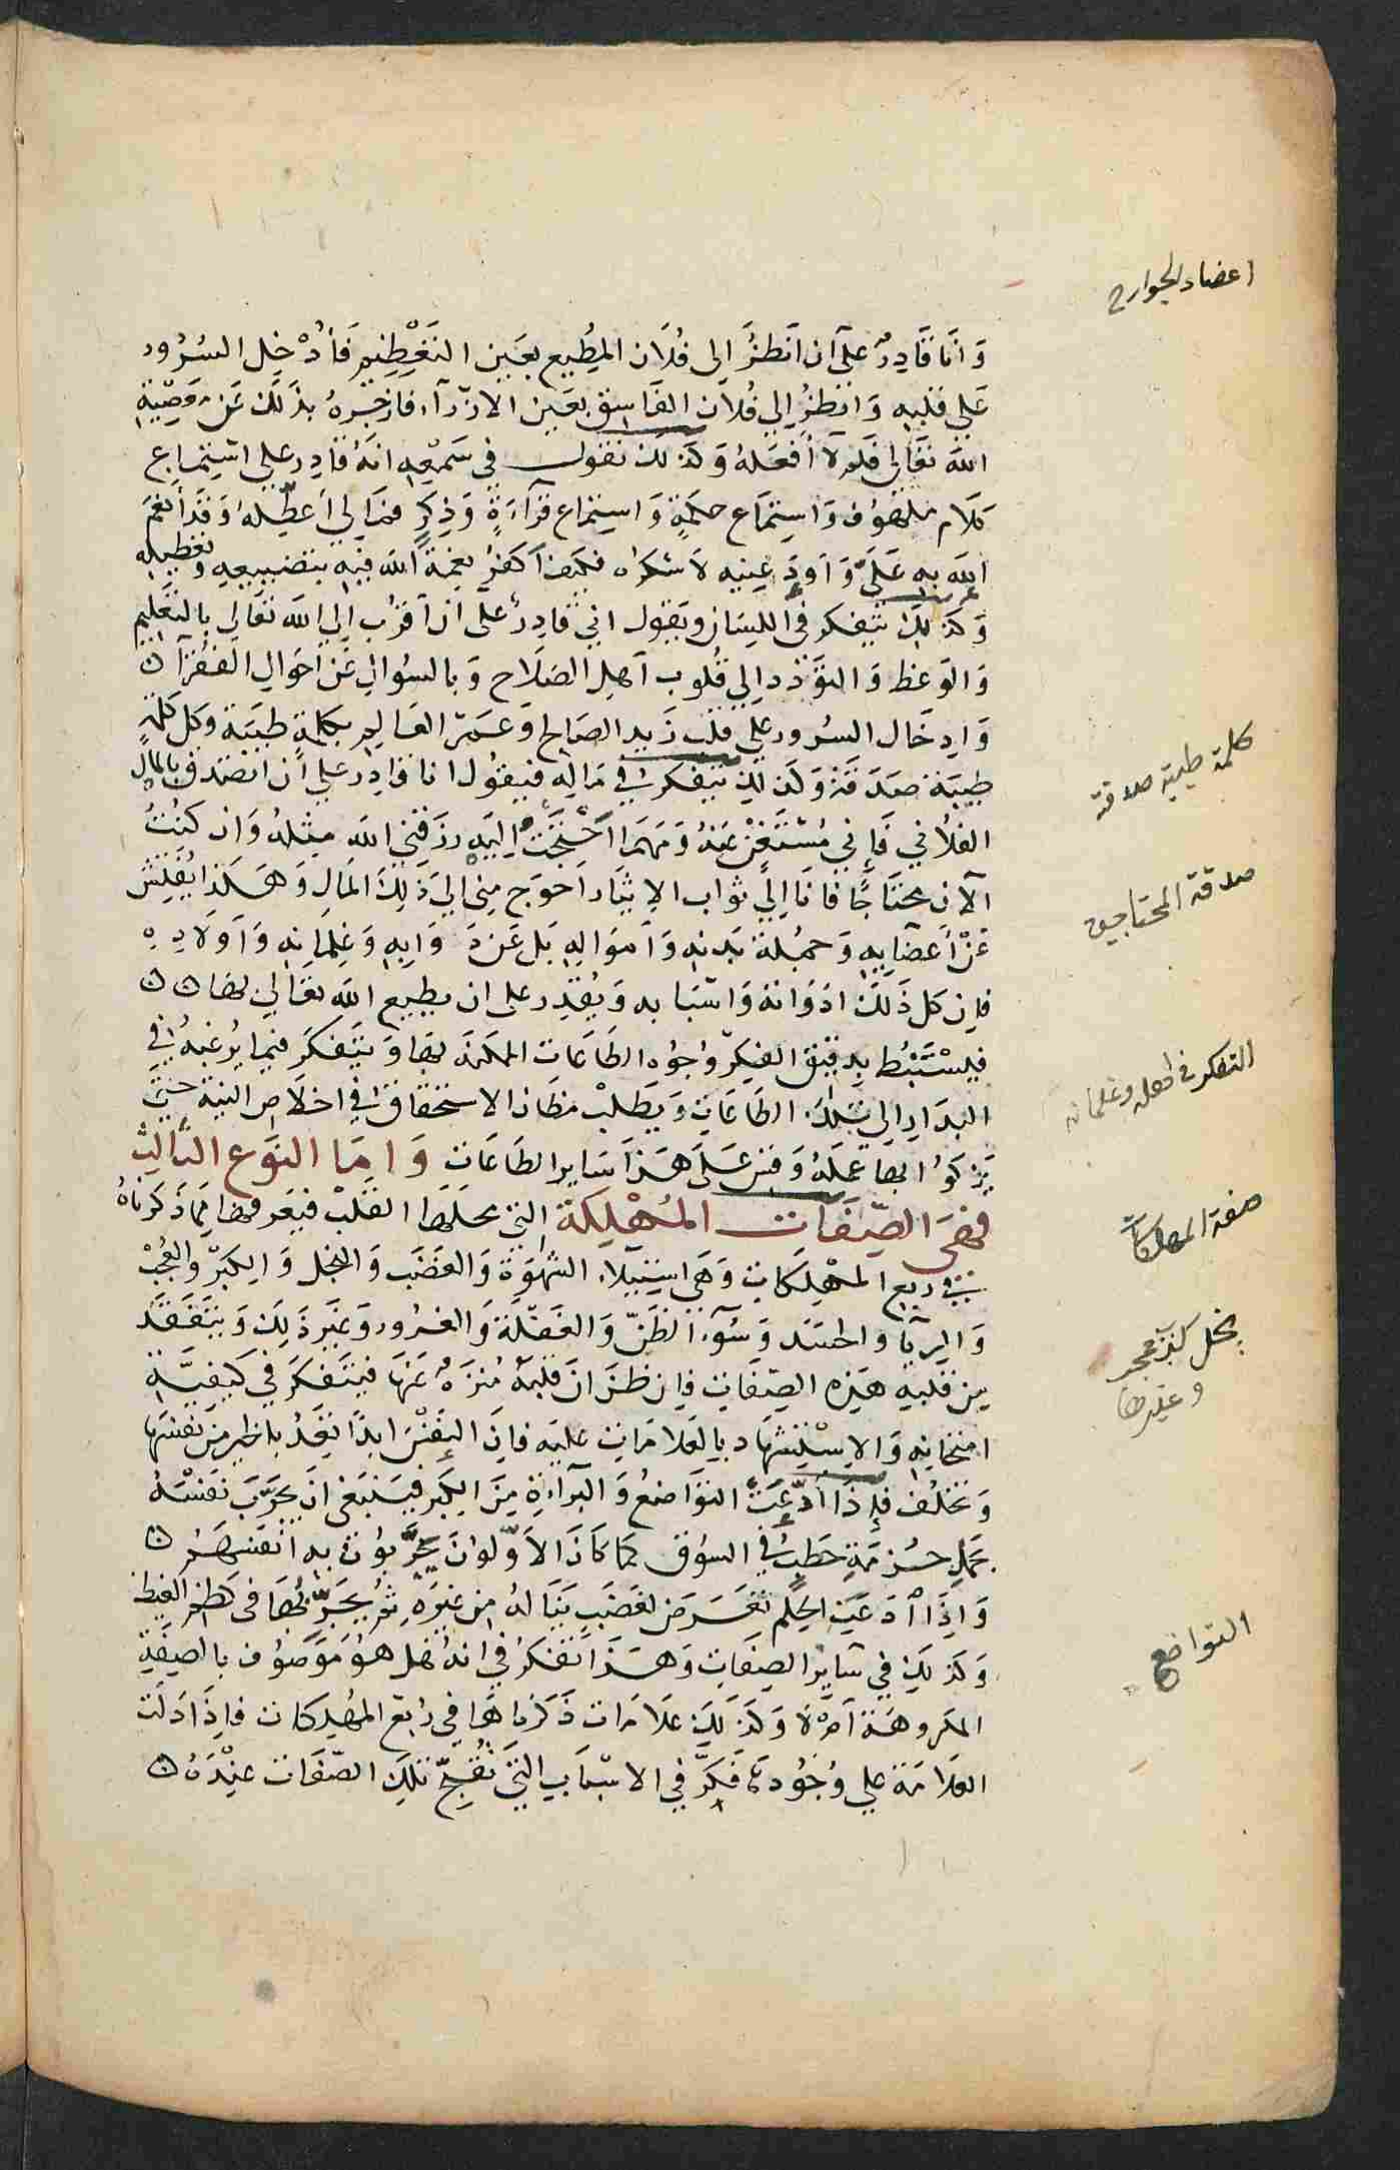 اعضاء الجوارح
وَاَنَا قَادِرٌ عَلَى اَن اَنظُرَ اِلى فُلَان المُطِيعِ بعَين التَّعْظِيمِ فَاُدْخِل السُرُور
عَلى قلبِه وَانظُرُ اِلي فُلان الفَاسِق بعَين الازدرآء فازجرهُ بذلكَ عَن مَعصِيَةِ
اللّه تعَالى فلم لا أفعَلهُ وَكذلكَ نقول في سَمْعِهِ انّهُ قادِر على استِمَاع
كلام ملهُوف وَاستِمَاع حِكمَةٍ وَاستِماع قرَآءَةٍ وَذِكرٍ فمَالي اُعطّلهُ وَقدْ أنعَمَ
اللّه بِه عَليَّ وَاَودَعنِيه لاشكرَه فكَيفَ اَكفرُ نِعمَةَ اللّه فِيهِ بتضييعِهِ وتعطيله
وَكذلِكَ يتفكر فى اللسَان ويقول اني قادِرٌ على اَن اَتقرّب اِلي اللّه تعَالى بالتعليم
وَالوَعظ وَالتوَدّد اِلي قُلوب اَهلِ الصَلَاح وَبالسُوال عَن اَحوَالِ الفُقرَآءِ ن
وَادخَال السرُور على قلب زَيد الصَالح وَعَمرو العَالِم بكلِمةٍ طيّبة وَكل كلمَةٍ
طيِّبَة صدَقة وَكذلِكَ يتفكر في مَالِه فيقول انا قادِر علي اَن اتصَدق بالمال
الفلاني فإني مُسْتَغْنٍ عنهُ وَمهمَا احْتَجْتُ اِليه رزَقني اللّه مِثلهُ وَان كنتُ
الآن محتاجًا فانَا اِلى ثواب الايثار اَحوَج مِنى الي ذلكَ المَالِ وَهَكذا يُفَتِّش
عَنْ أعضَايِه وَجُملة بَدنِه وَاَموَالِهِ بَل عَن دَوَابِه وَغلمَانِه وَاَولادِهِ
فاِن كل ذلكَ ادَوَاته وَاسْبَابه وَيقدر على ان يطيع اللّه تعَالى بهَا ن ن
فيسْتَنْبُط بِدقيق الفِكرِ وُجُوه الطَاعَات الممكنة بهَا وَيتفكّر فيما يُرغبهُ في
البدَارِ اِلى تلكَ الطَاعَاتِ وَيطلبْ مَظانّ الاستحقاق في اخلاصِ النيّة حتي
يَزكوا بهَا عَمَلهُ وَقِس عَلى هَذا سَاير الطَاعَات وَاَمَا النوَع الثالِث
فهىَ الصِّفات المُهْلِكة التي محلهَا القلبْ فيعرفهَا ممَا ذَكرناهُ
في ربع المهْلِكات وَهَى اسْتِيلاء الشهوَة وَالغضَب وَالبخل وَالكِبر والعُجْبُ
وَالرِيَا والحسَد وَسُوءَ الظنّ وَالغَفلَة وَالغرُور وَغير ذلكَ وَيتفقد
مِن قلبِه هَذِه الصِفاتِ فاِن ظنّ اَن قلبهُ مُنزهٌ عَنهَا فيتفكرَ في كيفيّةِ
امتحانِه وَالاسْتشهَاد بالعَلامَات عليه فاِن النفسَ ابدًا تعِدُ بالخير مِن نفسِهَا
وَتخلف فإذا ادّعَت التوَاضعَ وَالبرآءة مِنَ الكِبر فيَنبَغى اَن يجرّبَ نفسَهُ
بحملِ حُزمَةِ حَطبٍ في السُوق كمَا كانَ الاَوّلوُن يجرّبوُن بِه اَنفسَهُمْ ن
وَاِذَا ادّعَتِ الحِلم تعَرَّضَ لغضَبٍ يَنَالهُ مِن غيرهِ ثمّ يجَرِّبُهَا فى كظم الغيظ
وَكذلِكَ في سَايرِ الصِفات وَهَذا تفكرُ في انهُ هَل هُوَ مَوصُوف بالصِفةِ
المكروهَة اَمْ لا وَلذلِكَ عَلامَات ذكرناهَا في رُبع المُهلِكات فاِذا دَلت
العَلامَة على وُجُودهَا فكّرَ في الاسبَاب التي تُقبِّحُ تلكَ الصّفات عِنْدَهُ ن
كلمة طيبة صدقة
صدقة المحتاجين
التفكر في اهله وغلمانه
صفة المهلكات
بخل كبر عجب
وغيرها
التواضع